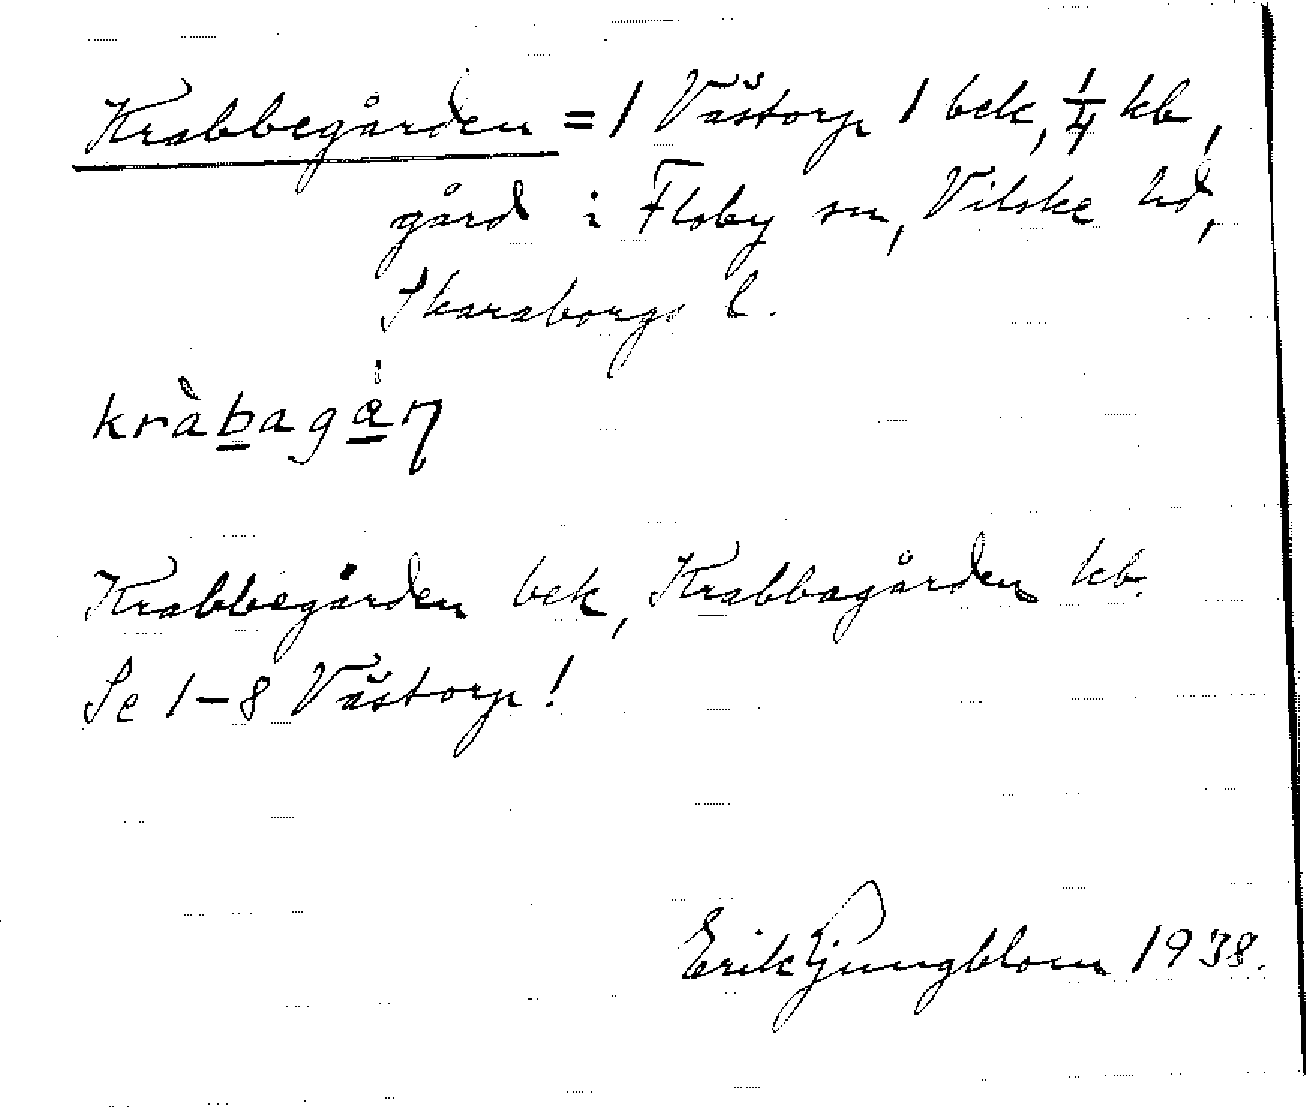 Krabbegården = 1 Västorp 1 bek, 1/4 kb,
gård i Floby sn, Vilske hd,
Skaraborgs l.
kràbagåɳ
Krabbegården bek, Krabbagården kb.
Se 1–8 Västorp!
Erik Ljungblom 1938.